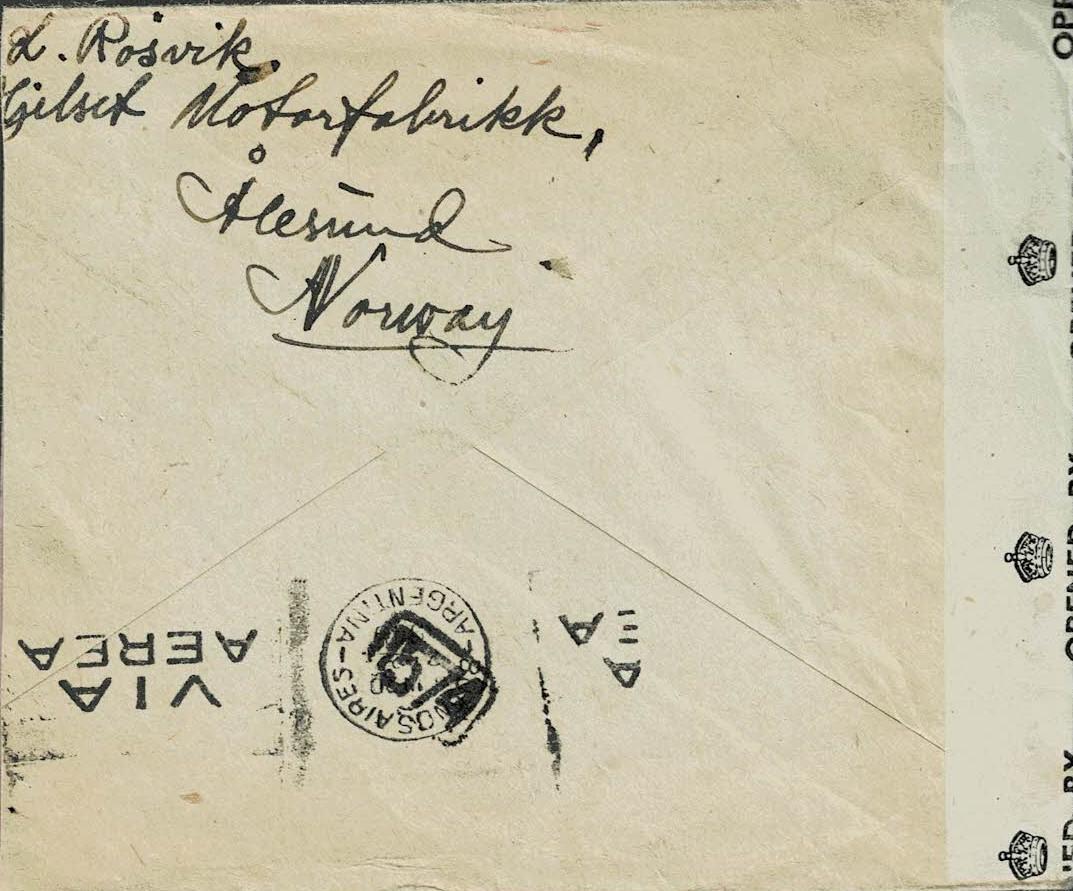 L. Røsvik,
Gjelset Motorfabrikk,
Ålesund
Norway
VIA
AEREA
BUENOS AIRES - ARGENTINA -
OPENED BY